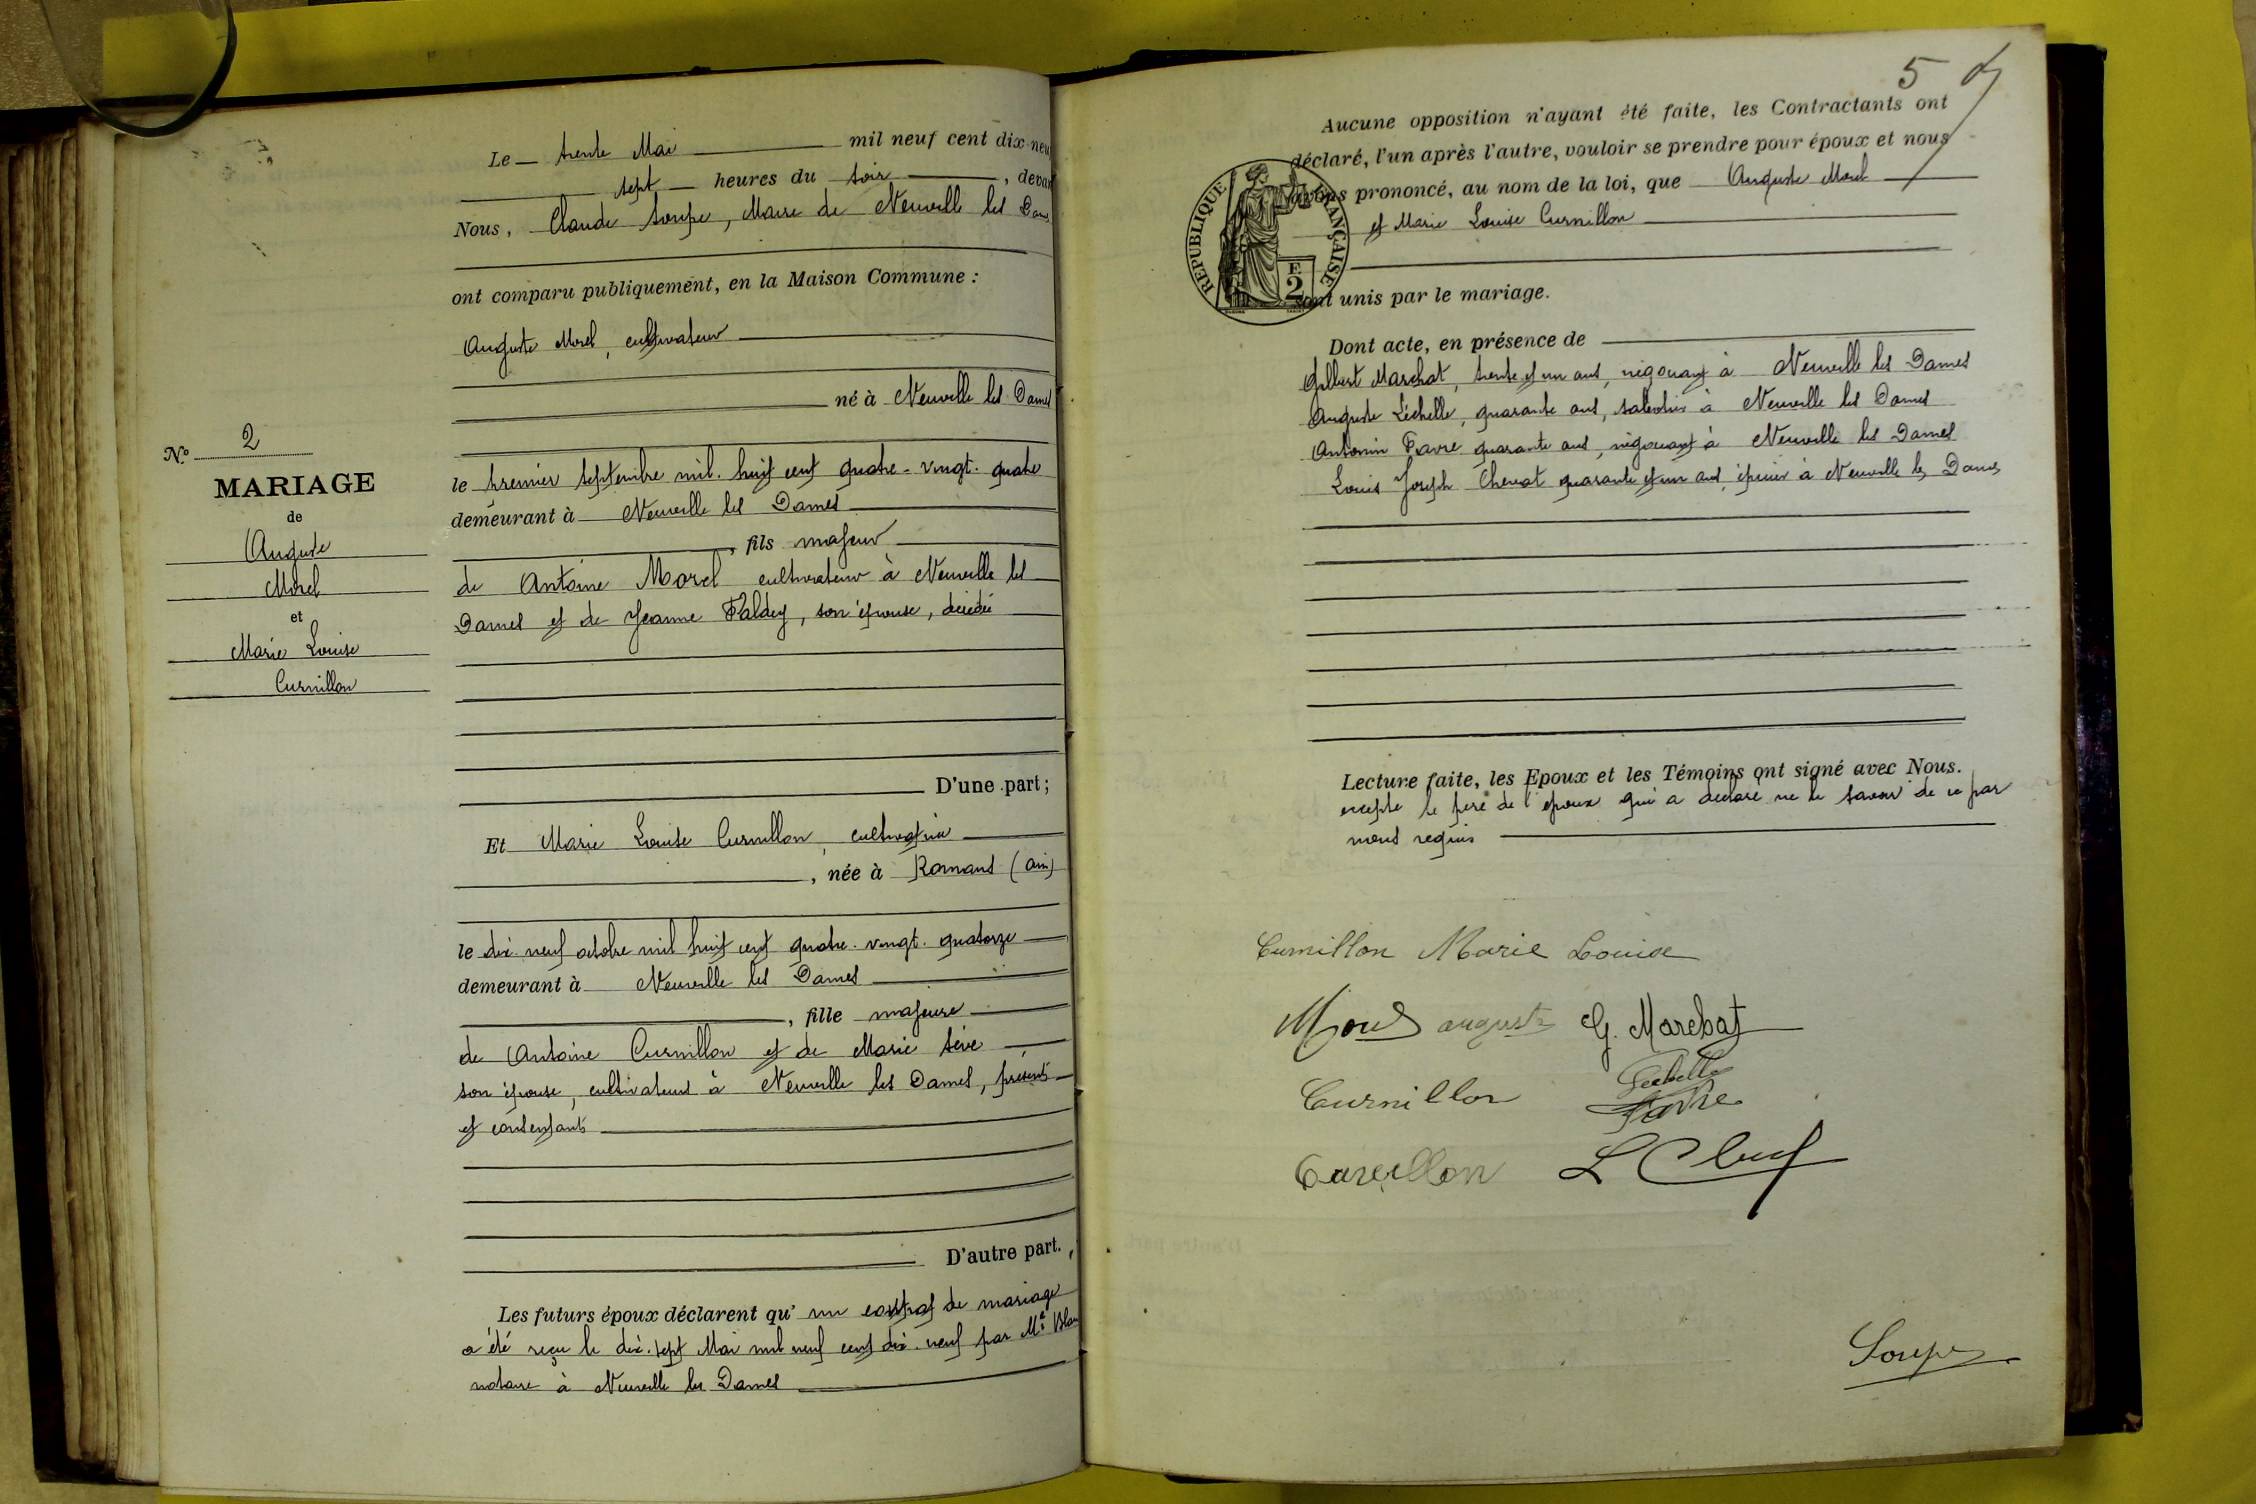 Le trente Mai mil neuf cent dix-neu
sept heures du soir, devan
Nous, Claude Soupe, Maire de Neuville les Dam
ont comparu publiquement, en la Maison Commune :
Auguste Morel, cultivateur
né à Neuville les Dames
le premier septembre mil. huit cent quatre-vingt-quatre
demeurant à Neuville les Dames
, fils majeur
de Antoine Morel cultivateur à Neuville les
Dames et de Jeanne Paldey, son épouse, décédée
D'une part ;
N° 2
MARIAGE
de
Auguste
Morel
et
Marie Louise
Curnillon
Et Marie Louise Curnillon, cultivatrice
, née à Romans (Ain)
le dix-neuf octobre mil huit cent quatre-vingt-quatorze
demeurant à Neuville les Dames
, fille majeure
de Antoine Curnillon et de Marie Sève
son épouse, cultivateurs à Neuville les Dames, présents
et consentants
D'autre part.
Les futurs époux déclarent qu'un contrat de mariage
a été reçu le dix-sept Mai mil neuf cent dix-neuf par Me Blan
notaire à Neuville les Dames
5
Aucune opposition n'ayant été faite, les Contractants ont
déclaré, l'un après l'autre, vouloir se prendre pour époux et nous
avons prononcé, au nom de la loi, que Auguste Morel
et Marie Louise Curnillon
RÉPUBLIQUE FRANÇAISE
F
2
sont unis par le mariage.
Dont acte, en présence de
Gilbert Marchat, trente et un ans, négociant à Neuville les Dames
Auguste Léchelle, quarante ans, à Neuville les Dames
Antonin Favre quarante ans, négociant à Neuville les Dames
Louis Joseph quarante et un ans, épicier à Neuville les Dames
Lecture faite, les Epoux et les Témoins ont signé avec Nous.
excepté le père de l'époux qui a déclaré ne le savoir de ce par
nous requis
Curnillon Marie Louise
Morel auguste G. Marchat
Lechelle
Curnillon Favre
Curnillon
Soupe